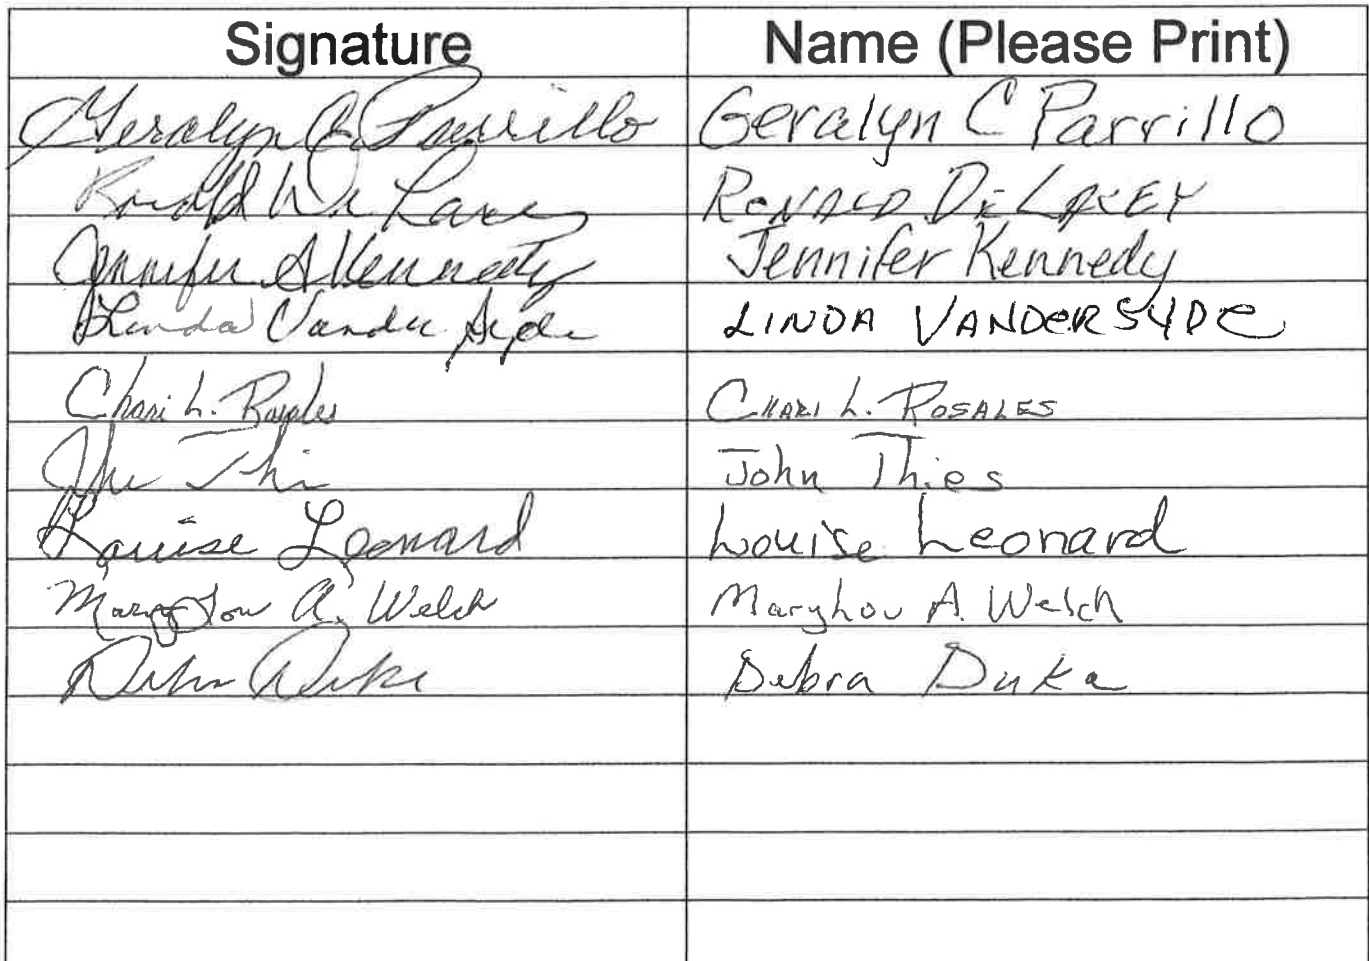 Signature Name (Please Print)
Geralyn C Parrillo Geralyn C Parrillo
Ronald De Lacey RONALD DELACEY
Jennifer A Kennedy Jennifer Kennedy
Linda Vander Syde LINDA VANDERSYDE
Chari L. Rosales CHARI L. ROSALES
John Thies
Louise Leonard Louise Leonard
Mary Lou A. Welch MaryLou A. Welch
Debra Duke Debra Duke